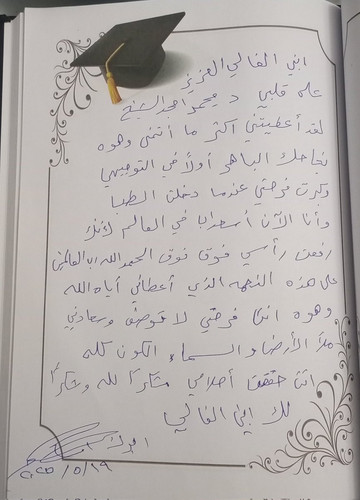 ابني الغالي العزيز
على قلبي د محمد امجد الشيخ
لقد أعطيتني أكثر ما أتمنى وهوه
نجاحك الباهر أولاً في التوجيهي
وكبرت فرحتي عندما دخلت الطب
وأنا الآن أسعد أب في العالم لأنك
رفعت رأسي فوق فوق الحمد الله رب العالمين
على هذه النعمه الذي أعطاني أياه الله
وهوه انت فرحتي لا توصف وسعادتي
ملأ الأرض والسماء الكون كله
انت حققت أحلامي شكراً لله وشكراً
لك ابني الغالي
١٩/٥/